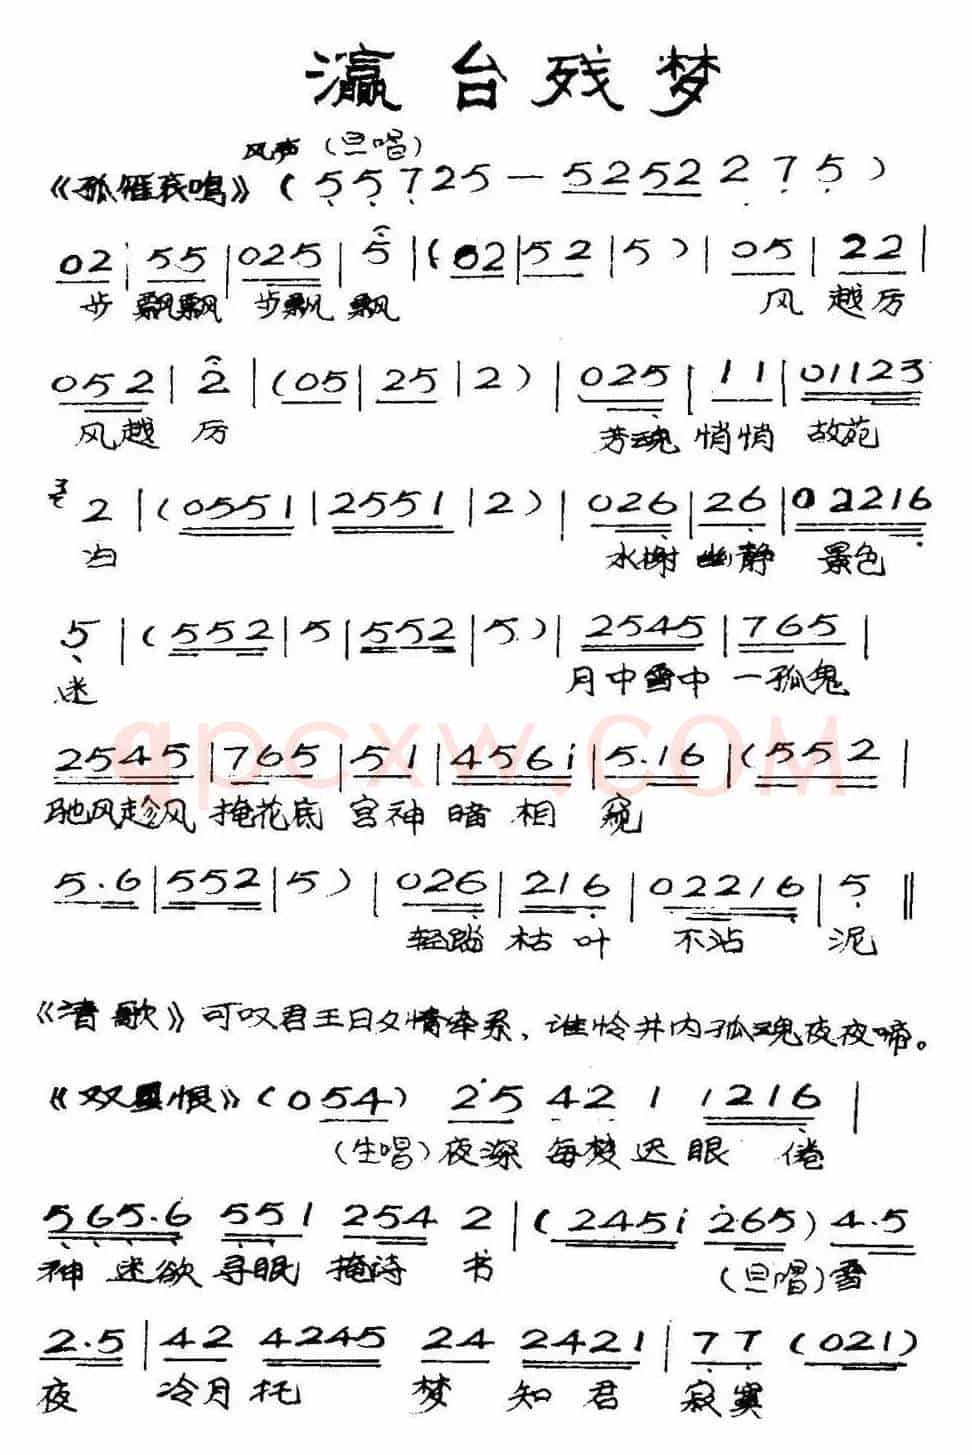 瀛台残梦
风声 (旦唱)
《孤雁哀鸣》 ( 5 5 7 2 5 — 5 2 5 2 2 7 5 )
0 2 | 5 5 | 0 2 5 | 5 | ( 0 2 | 5 2 | 5 ) | 0 5 | 2 2 |
步 飘飘 步飘 飘 风 越厉
0 5 2 | 2 | ( 0 5 | 2 5 | 2 ) | 0 2 5 | 1 1 | 0 1 1 2 3
风越 厉 芳魂 悄悄 故苑
2 | ( 0 5 5 1 | 2 5 5 1 | 2 ) | 0 2 6 | 2 6 | 0 2 2 1 6
归 水榭 幽静 景色
5 | ( 5 5 2 | 5 | 5 5 2 | 5 . ) | 2 5 4 5 | 7 6 5 |
迷 月中雪中 一孤鬼
2 5 4 5 | 7 6 5 | 5 1 | 4 5 6 i | 5 . 1 6 | ( 5 5 2 |
驰风趁风 掩花底 宫神 暗 相 窥
qpcxw.com
5 . 6 | 5 5 2 | 5 ) | 0 2 6 | 2 1 6 | 0 2 2 1 6 | 5 ‖
轻踏 枯叶 不沾 泥
《清歌》可叹君王日夕情牵系，谁怜井内孤魂夜夜啼。
《双星恨》 ( 0 5 4 ) 2 5 4 2 1 1 2 1 6 |
(生唱) 夜深 每梦 迟 眼 倦
5 6 5 . 6 5 5 1 2 5 4 2 | ( 2 4 5 i 2 6 5 ) 4 . 5
神 迷欲 寻眠 掩诗 书 (旦唱) 雪
2 . 5 | 4 2 4 2 4 5 2 4 2 4 2 1 | 7 7 ( 0 2 1 )
夜 冷月 托 梦 知 君 寂寞